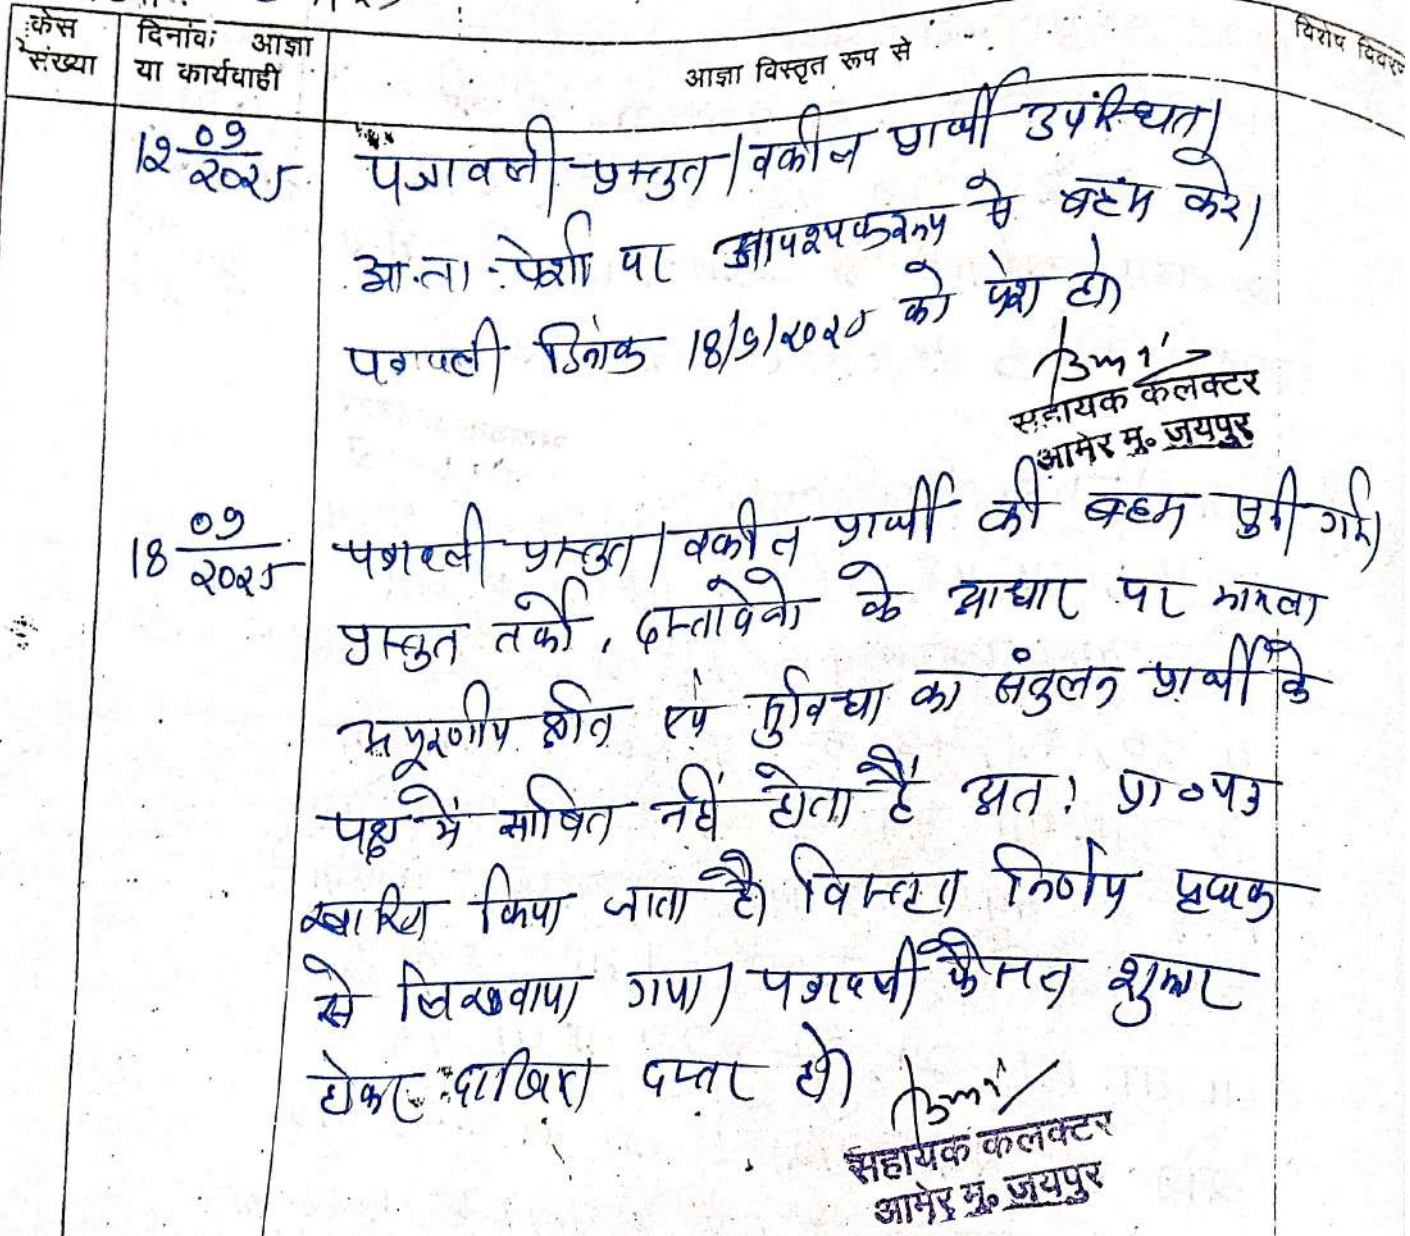 केस संख्या
दिनांक आज्ञा या कार्यवाही
आज्ञा विस्तृत रूप से
विशेष विवरण
12 09/2025
पत्रावली प्रस्तुत। वकील प्रार्थी उपस्थित।
आ.ता. पेशी पर आवश्यक रूप से बहस करे।
पत्रावली दिनांक 18/9/2025 को पेश हो।
सहायक कलक्टर
आमेर मु. जयपुर
18 09/2025
पत्रावली प्रस्तुत। वकील प्रार्थी की बहस सुनी गई।
प्रस्तुत तर्को, दस्तावेजो के आधार पर मामला
अपूरणीय क्षति एवं सुविधा का संतुलन प्रार्थी के
पक्ष में साबित नहीं होता है अत: प्रा०पत्र
खारिज किया जाता है। विस्तृत निर्णय पृथक
से लिखवाया गया। पत्रावली फैसल शुमार
होकर दाखिल दफ्तर हो।
सहायक कलक्टर
आमेर मु. जयपुर